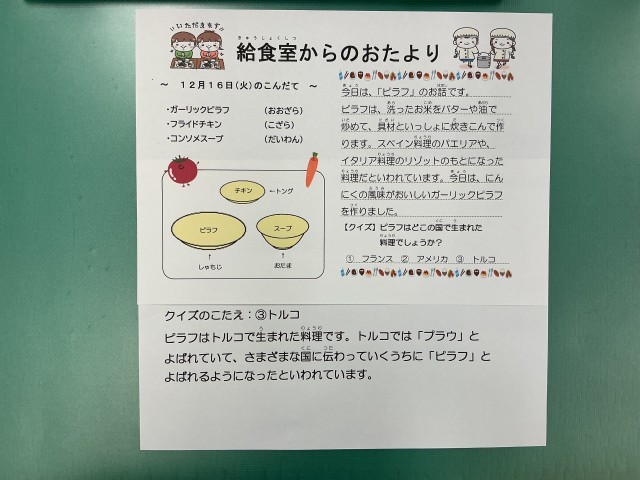 いただきます!!
給食室からのおたより
きゅうしょくしつ
~ 12月16日(火)のこんだて ~
・ガーリックピラフ （おおざら）
・フライドチキン （こざら）
・コンソメスープ （だいわん）
チキン ←トング
ピラフ スープ
↑ ↑
しゃもじ おたま
今日は、「ピラフ」のお話です。
ピラフは、洗ったお米をバターや油で
炒めて、具材といっしょに炊きこんで作
ります。スペイン料理のパエリアや、
イタリア料理のリゾットのもとになった
料理だといわれています。今日は、にん
にくの風味がおいしいガーリックピラフ
を作りました。
【クイズ】ピラフはどこの国で生まれた
料理でしょうか？
① フランス ② アメリカ ③ トルコ
クイズのこたえ：③トルコ
ピラフはトルコで生まれた料理です。トルコでは「プラウ」と
よばれていて、さまざまな国に伝わっていくうちに「ピラフ」と
よばれるようになったといわれています。